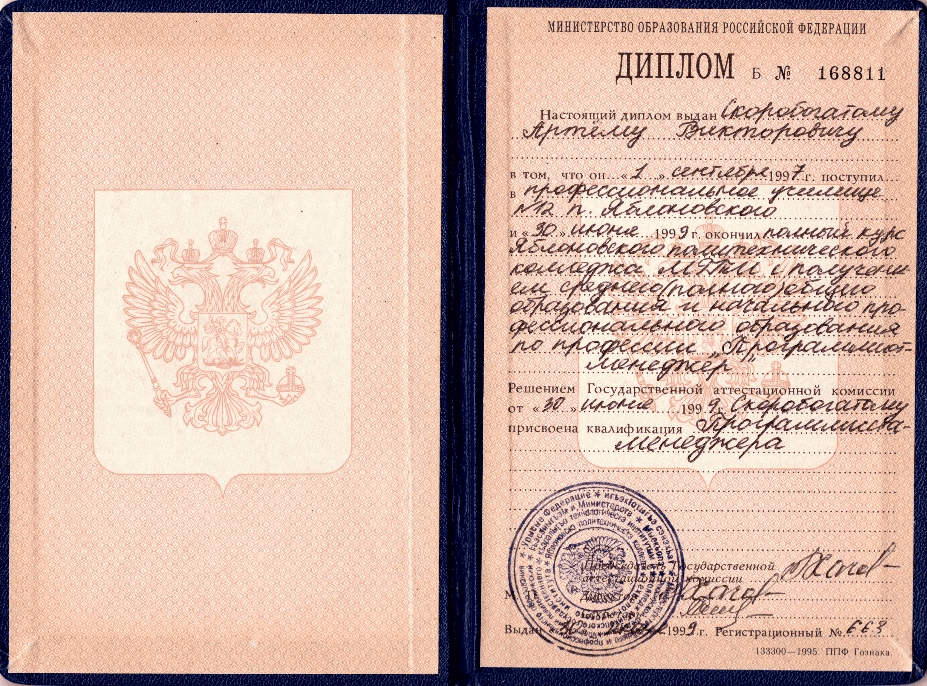 МИНИСТЕРСТВО ОБРАЗОВАНИЯ РОССИЙСКОЙ ФЕДЕРАЦИИ
ДИПЛОМ Б № 168811
Настоящий диплом выдан Скоробогатому
Артёму Викторовичу
в том, что он «1» сентября 1997 г. поступил
в профессиональное училище
№12 п. Яблоновского
и «30» июня 1999 г. окончил полный курс
Яблоновского политехнического
колледжа МГТИ с получени-
ем среднего (полного) общего
образования и начального про-
фессионального образования
по профессии „Программист-
менеджер"
Решением Государственной аттестационной комиссии
от «30» июня 1999 г. Скоробогатому
присвоена квалификация Программиста-
менеджера
Председатель Государственной
аттестационной комиссии
Выдан 1999 г. Регистрационный № 663
133300—1995. ППФ Гознака.